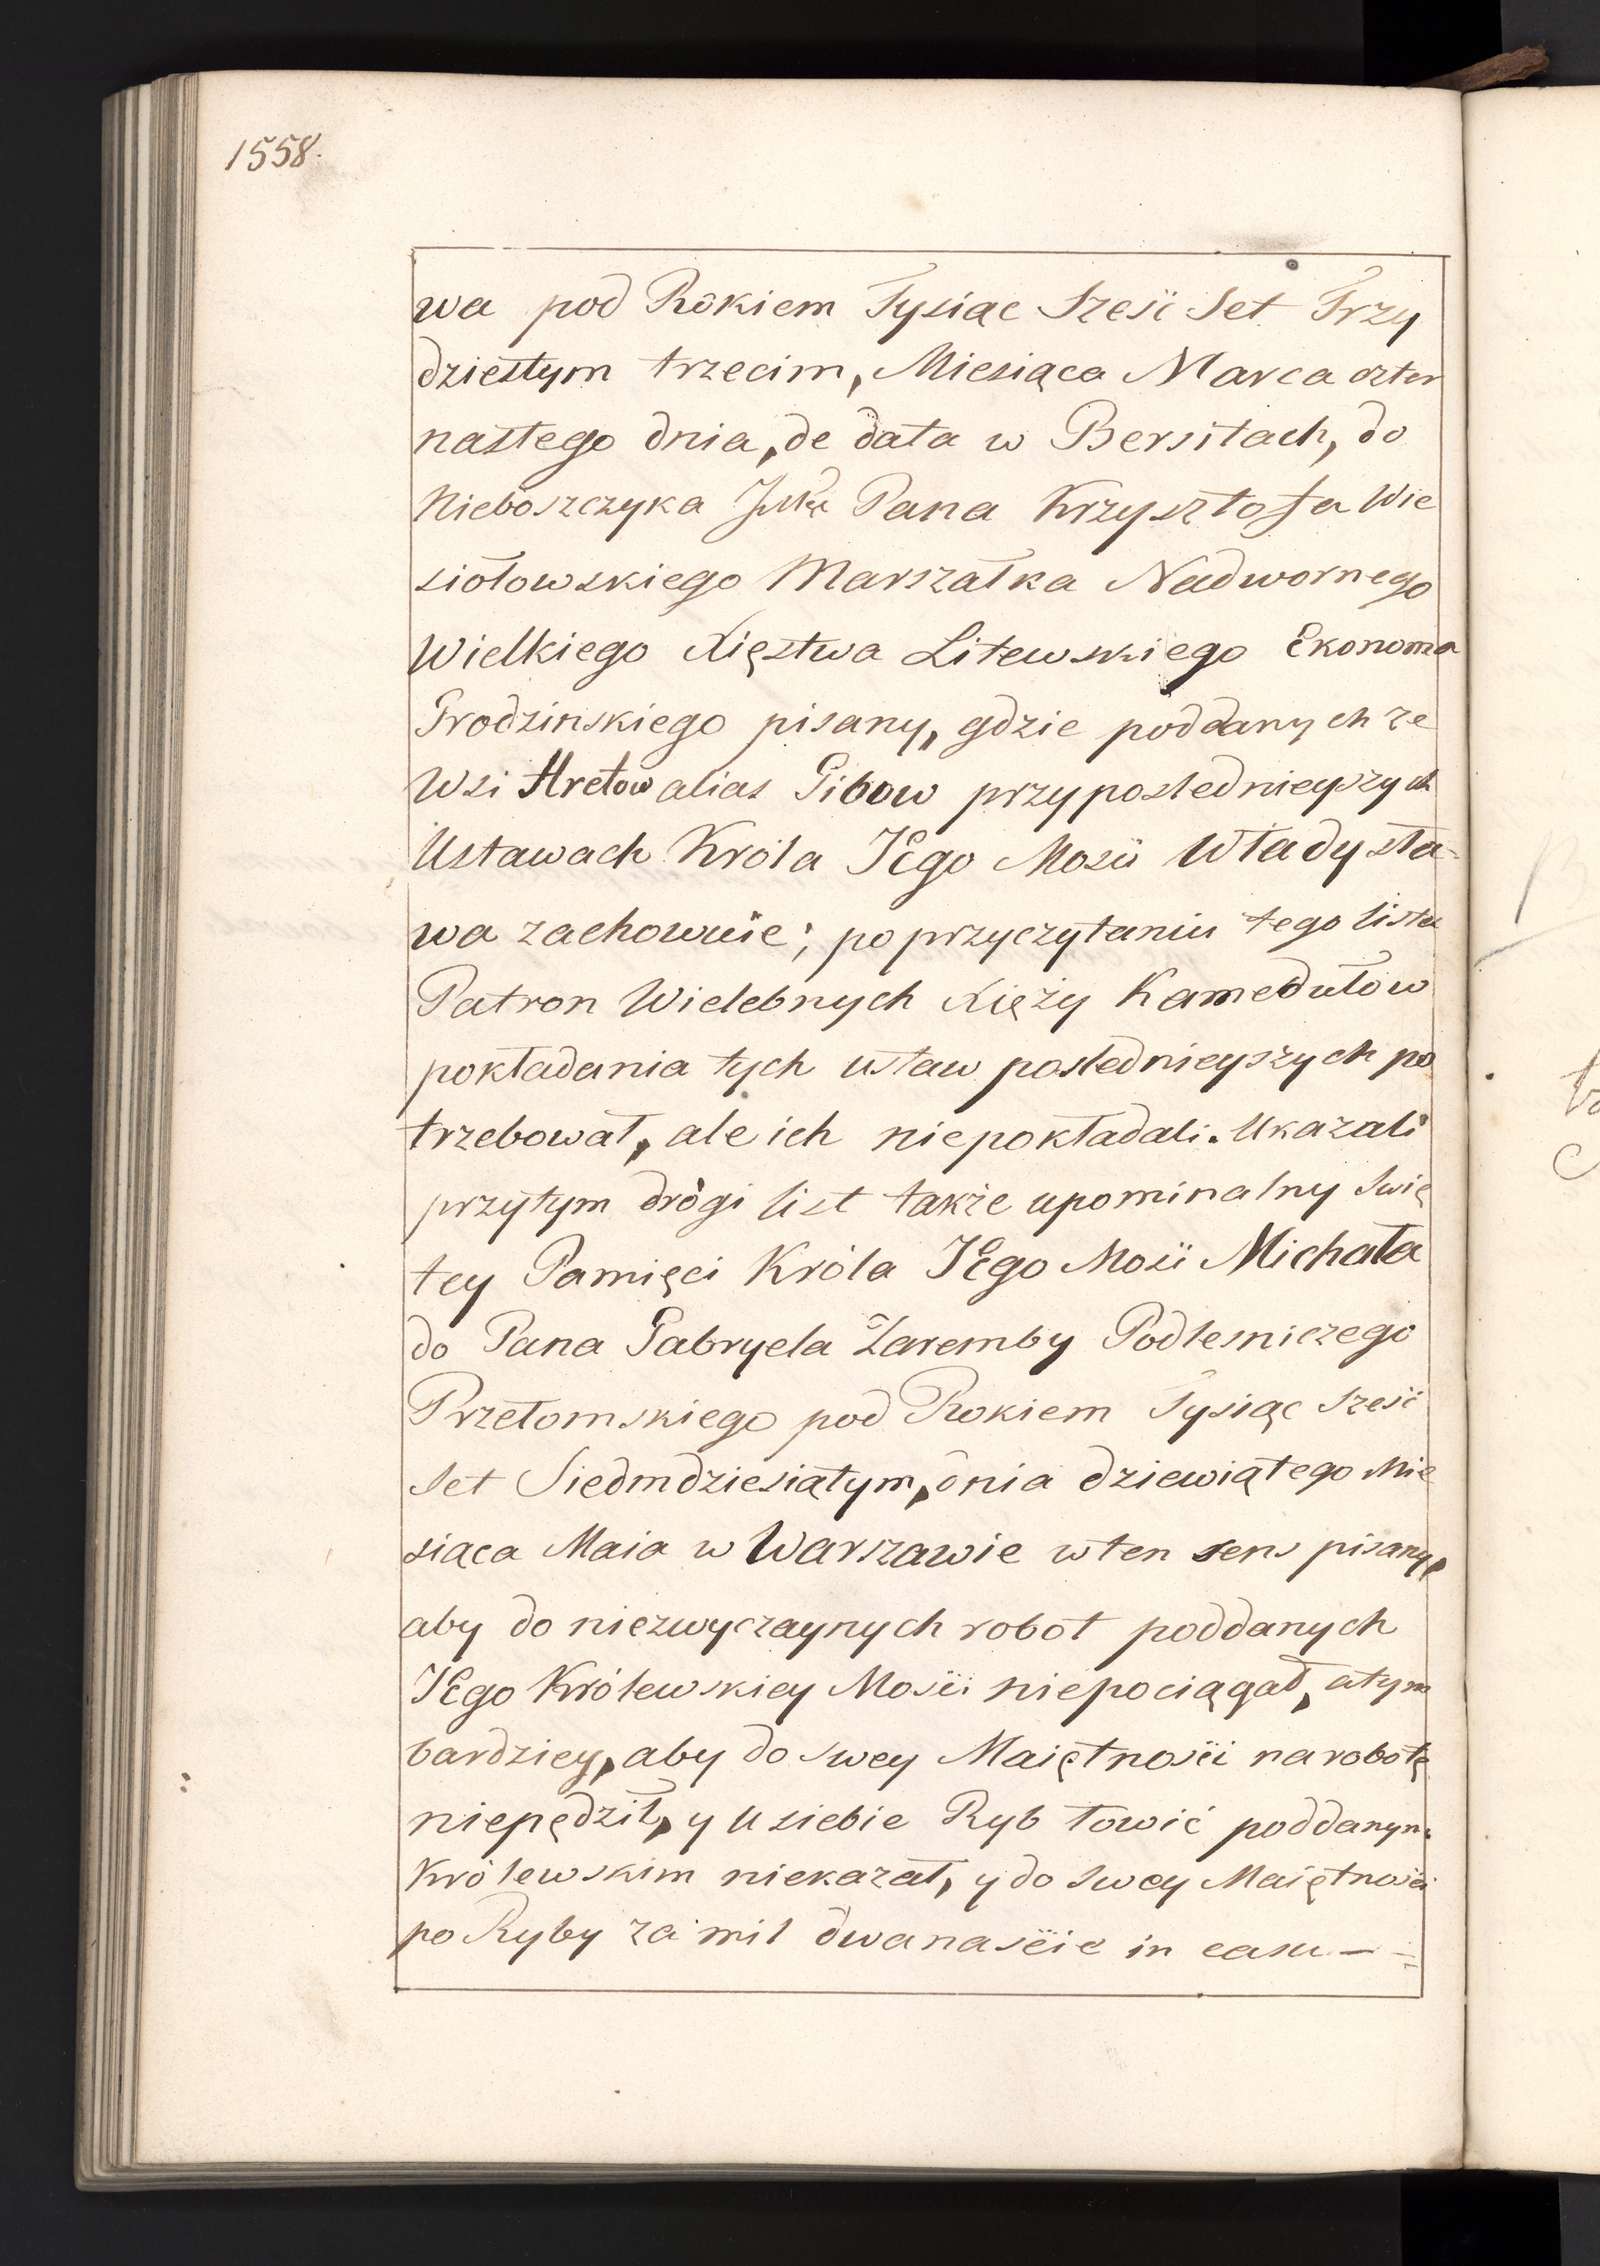 1558.
wa pod Rokiem Tysiąc Sześć Set Trzy
dziestym trzecim, Miesiąca Marca czter
nastego dnia, de data w Bersztach, do
Nieboszczyka Pana Krzysztofa Wie
siołowskiego Marszałka Nadwornego
Wielkiego Xięstwa Litewskiego Ekonoma
Grodzinskiego pisany, gdzie poddanych ze
Wsi Hretow alias Gibow przy poslednieyszych
Ustawach Króla JEgo Mości Władysła-
wa zachowuie; po przyczytaniu tego listu
Patron Wielebnych Xięży Kamedułow
pokładania tych ustaw poslednieyszych po
trzebował, ale ich niepokładali. Ukazali
przytym drógi list także upominalny Swię
tey Pamięci Króla JEgo Mości Michała
do Pana Gabryela Zaremby Podlesniczego
Przełomskiego pod Rokiem Tysiąc Sześć
Set Siedmdziesiątym, dnia dziewiątego Mie
siąca Maia w Warszawie w ten sens pisany,
aby do niezwyczaynych robot poddanych
JEgo Królewskiey Mości niepociągał, a tym
bardziey, aby do swey Maiętności na robotę
niepędził, y u siebie Ryb łowić poddanym
Królewskim niekazał, y do swey Maiętności
po Ryby za mil dwanaście in casu —